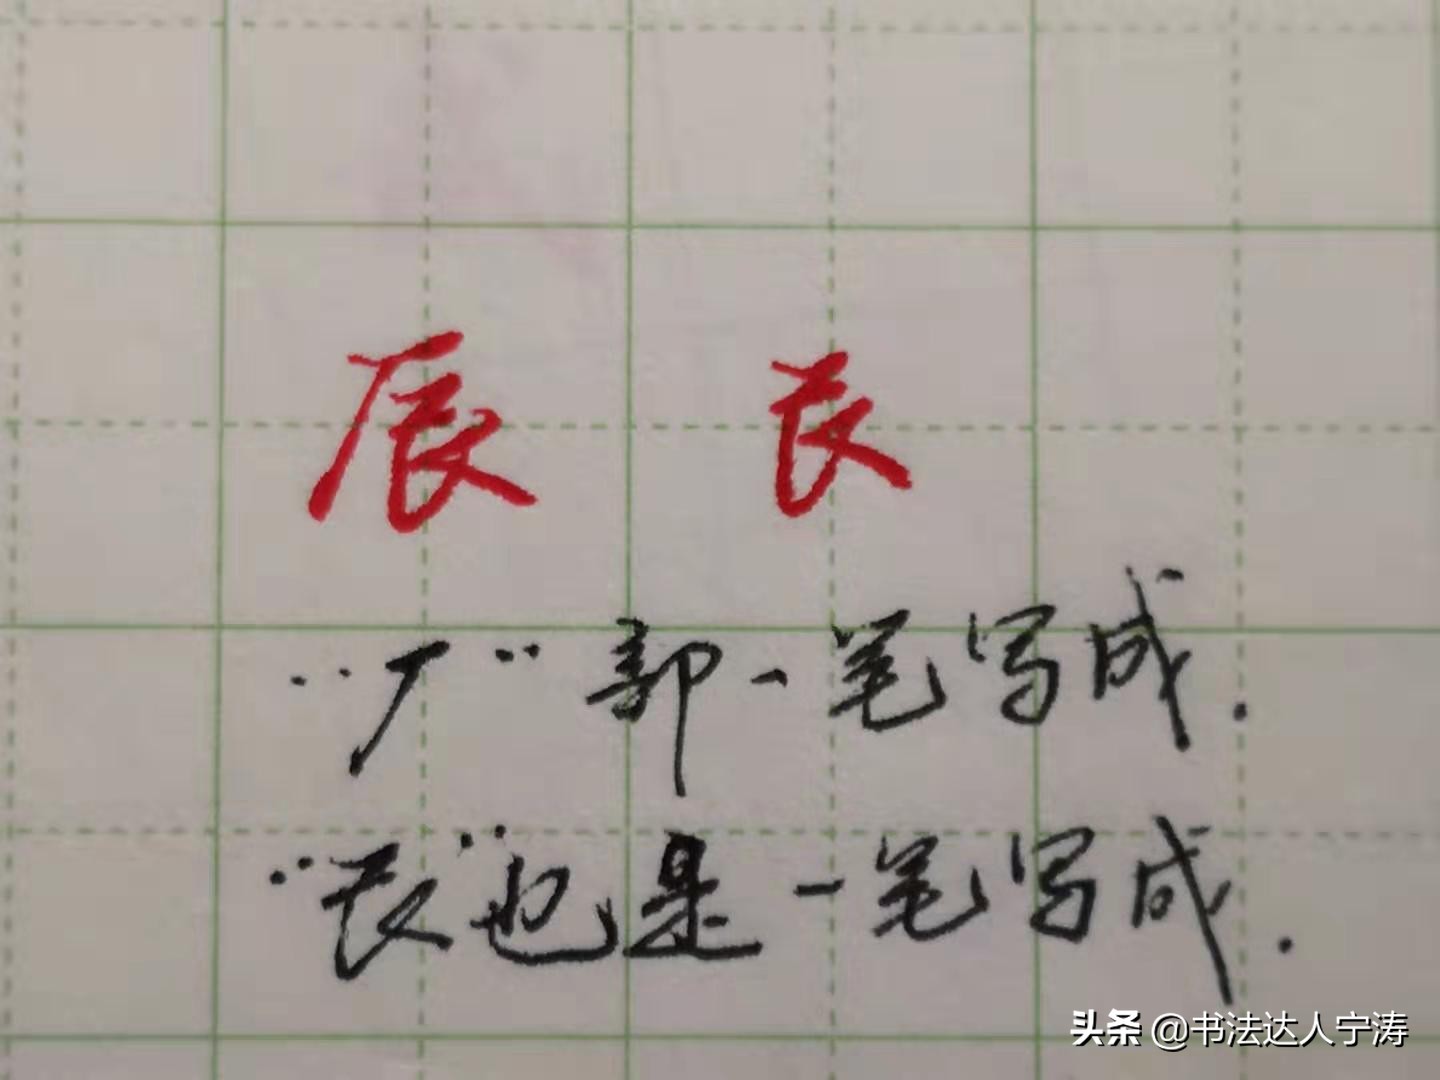 辰
"厂"部一笔写成.
" "也是一笔写成.
头条 @书法达人宁涛